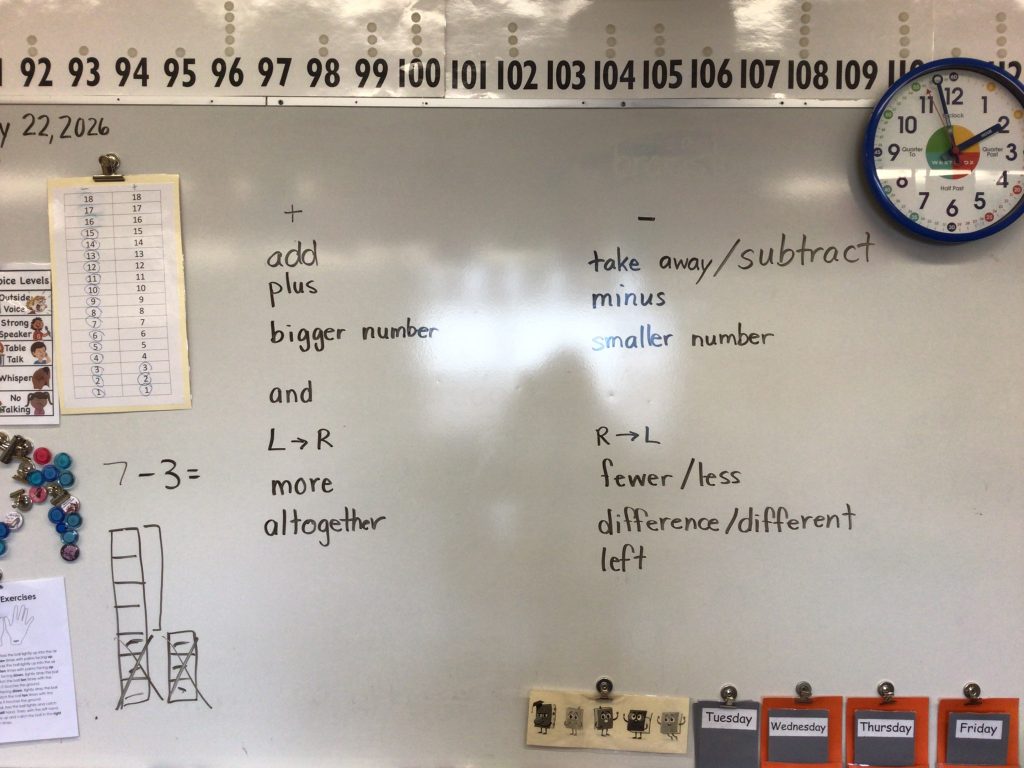 92 93 94 95 96 97 98 99 100 101 102 103 104 105 106 107 108 109
22, 2026
12
1
2
3
4
5
6
7
8
9
10
11
o'clock
Quarter Past
Half Past
Quarter To
- +
18 18
17 17
16 16
15 15
14 14
13 13
12 12
11 11
10 10
9 9
8 8
7 7
6 6
5 5
4 4
3 3
2 2
1 1
oice Levels
Outside Voice
Strong Speaker
Table Talk
Whisper
No Talking
7-3=
+
add
plus
bigger number
and
L→R
more
altogether
-
take away/subtract
minus
smaller number
R→L
fewer/less
difference/different
left
Exercises
Tuesday
Wednesday
Thursday
Friday